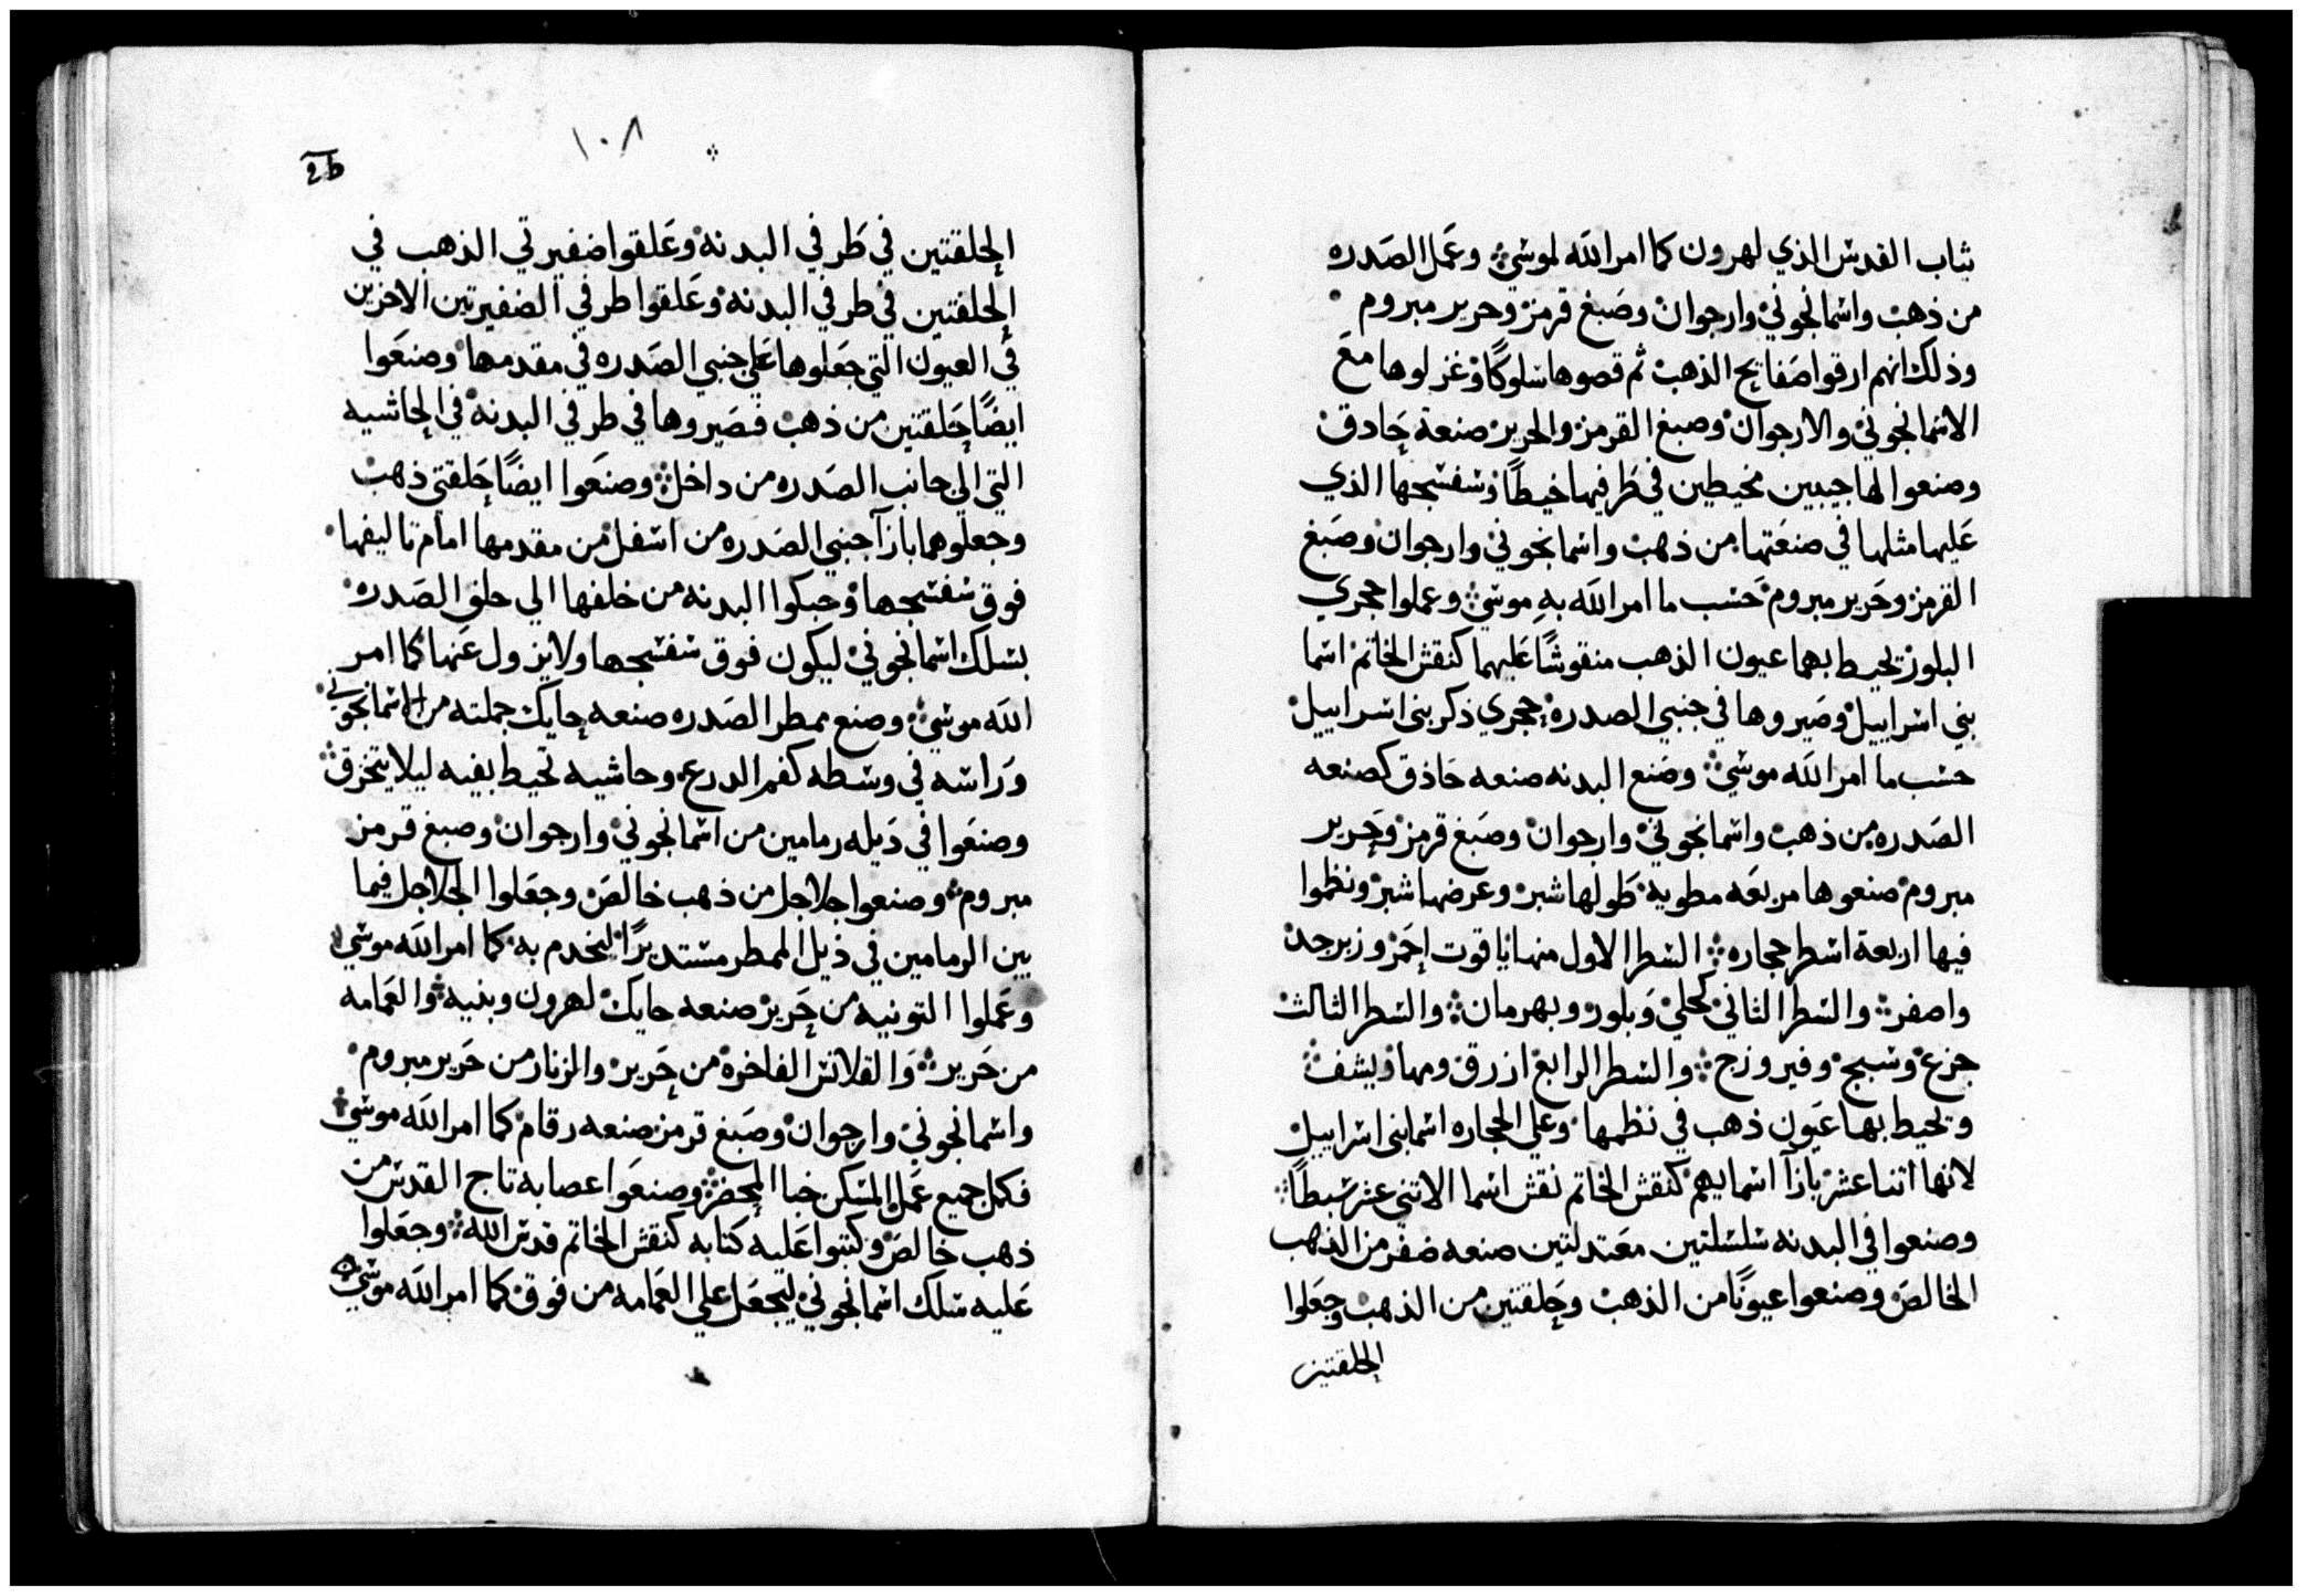 ثياب القدس الذي لهرون كما امر الله لموسي وعَمل الصَدره
من ذهب واسمانجوني وارجوان وصَبغ قرمز وحرير مبروم
وذلك انهم ارقوا صَفايح الذهب ثم قصوها سلوكًا وغزلوها معَ
الاسمانجوني والارجوان وصبغ القرمز والحرير صنعة حَادق
وصنعوا لها جيبين مخيطين في طَرفيها خيطًا وشفشجها الذي
عَليها مثلها في صنعَتها من ذهب واسمانجوني وارجوان وصَبغ
القرمز وحَرير مبروم حَسب ما امر الله بهِ موسي وعملوا حجري
البلور تحيط بهما عيون الذهب منقوشًا عَليهما كنقش الخاتم اسما
بني اسراييل وصَيروها في جنبي الصدره حجري ذكر بني اسراييل
حسب ما امر الله موسي وصَنع البدنه صنعه حَاذق كصنعه
الصَدره من ذهب واسمانجوني وارجوان وصَبغ قرمز وحَرير
مبروم صنعوها مربعَه مطويه طَولها شبر وعرضها شبر ونظموا
فيها اربعة اسطر حجاره السَطر الاول منها ياقوت احَمر وزبرجد
واصفر والسَطر الثاني كحلي وَبلور وبهرمان والسَطر الثالث
جزع وسبج وفيروزج والسَطر الرابع ازرق ومها ويشف
وتحيط بها عَيون ذهب في نظمها وعلي الحجاره اسما بني اسراييل
لانها اتنا عشر بازآ اسمايهم كنقش الخاتم نقش اسما الاتني عشر سَبطًا
وصنعوا في البدنه سَلسَلتين معَتدلتين صنعه ضفر من الذهب
الخالصَ وصنعوا عيونًا من الذهب وحَلقتين من الذهب وجعَلوا
الحلقتين
١٠٨
26
الحلقتين في طَرفي البدنة وعَلقوا ضفيرتي الذهب في
الحلقتين في طرفي البدنة وعَلقوا طرفي الضفيرتين الاخرين
في العيون التي جعَلوها عَلي جنبي الصَدره في مقدمها وصنعَوا
ايضًا حَلقتين من ذهب فصَيروها في طرفي البدنة في الحاشيه
التي الي جانب الصَدره من داخل وصنعَوا ايضًا حَلقتي ذهب
وجعلوهما بازآ جنبي الصَدره من اسفل من مقدمها امام تاليفها
فوق شفشجها وحبكوا البدنه من خلفها الي حلق الصَدره
بسلك اسمانجوني ليكون فوق شفشجها ولا يزول عَنها كما امر
الله موسي وصنع ممطر الصَدره صنعه حايك جملته من اسمانجوني
وَراسه في وسَطه كفم الدرع وحاشيه تحيط بفيه ليلا يتخرق
وصنعَوا في ذيله رمامين من اسمانجوني وارجوان وصبغ قرمز
مبروم وصنعوا جلاجل من ذهب خالصَ وجعَلوا الجلاجل فيما
بين الرمامين في ذيل الممطر مستديرًا ليخدم به كما امر الله موسي
وعَملوا التونيه من حَرير صنعه حايك لهرون وبنيه والعَمامه
من حَرير وَالقلانس الفاخرة من حَرير والزنار من حَرير مبروم
واسمانجوني وارجوان وصَبغ قرمز صنعه رقام كما امر الله موسي
فكمل جميع عَمل المسكن خبا المحضر وصنعَوا عصابه تاج القدس من
ذهب خالصَ وكتبوا عَليه كتابه كنقش الخاتم قدس الله وجعَلوا
عَليه سَلك اسمانجوني ليجعَل علي العَمامه من فوق كما امر الله موسي